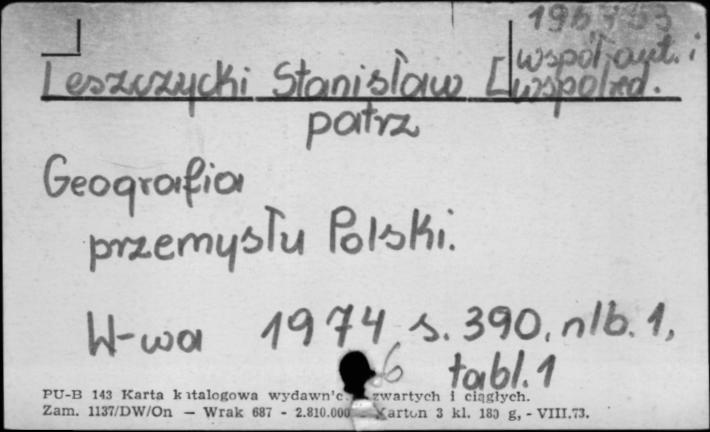 Leszczycki Stanisław [współaut. i
współred.
patrz
Geografia
przemysłu Polski.
W-wa 1974 s. 390, nlb. 1,
tabl. 1
6
PU-B 143 Karta katalogowa wydawn'c zwartych i ciągłych.
Zam. 1137/DW/On — Wrak 687 - 2.810.000 Karton 3 kl. 180 g, - VIII.73.